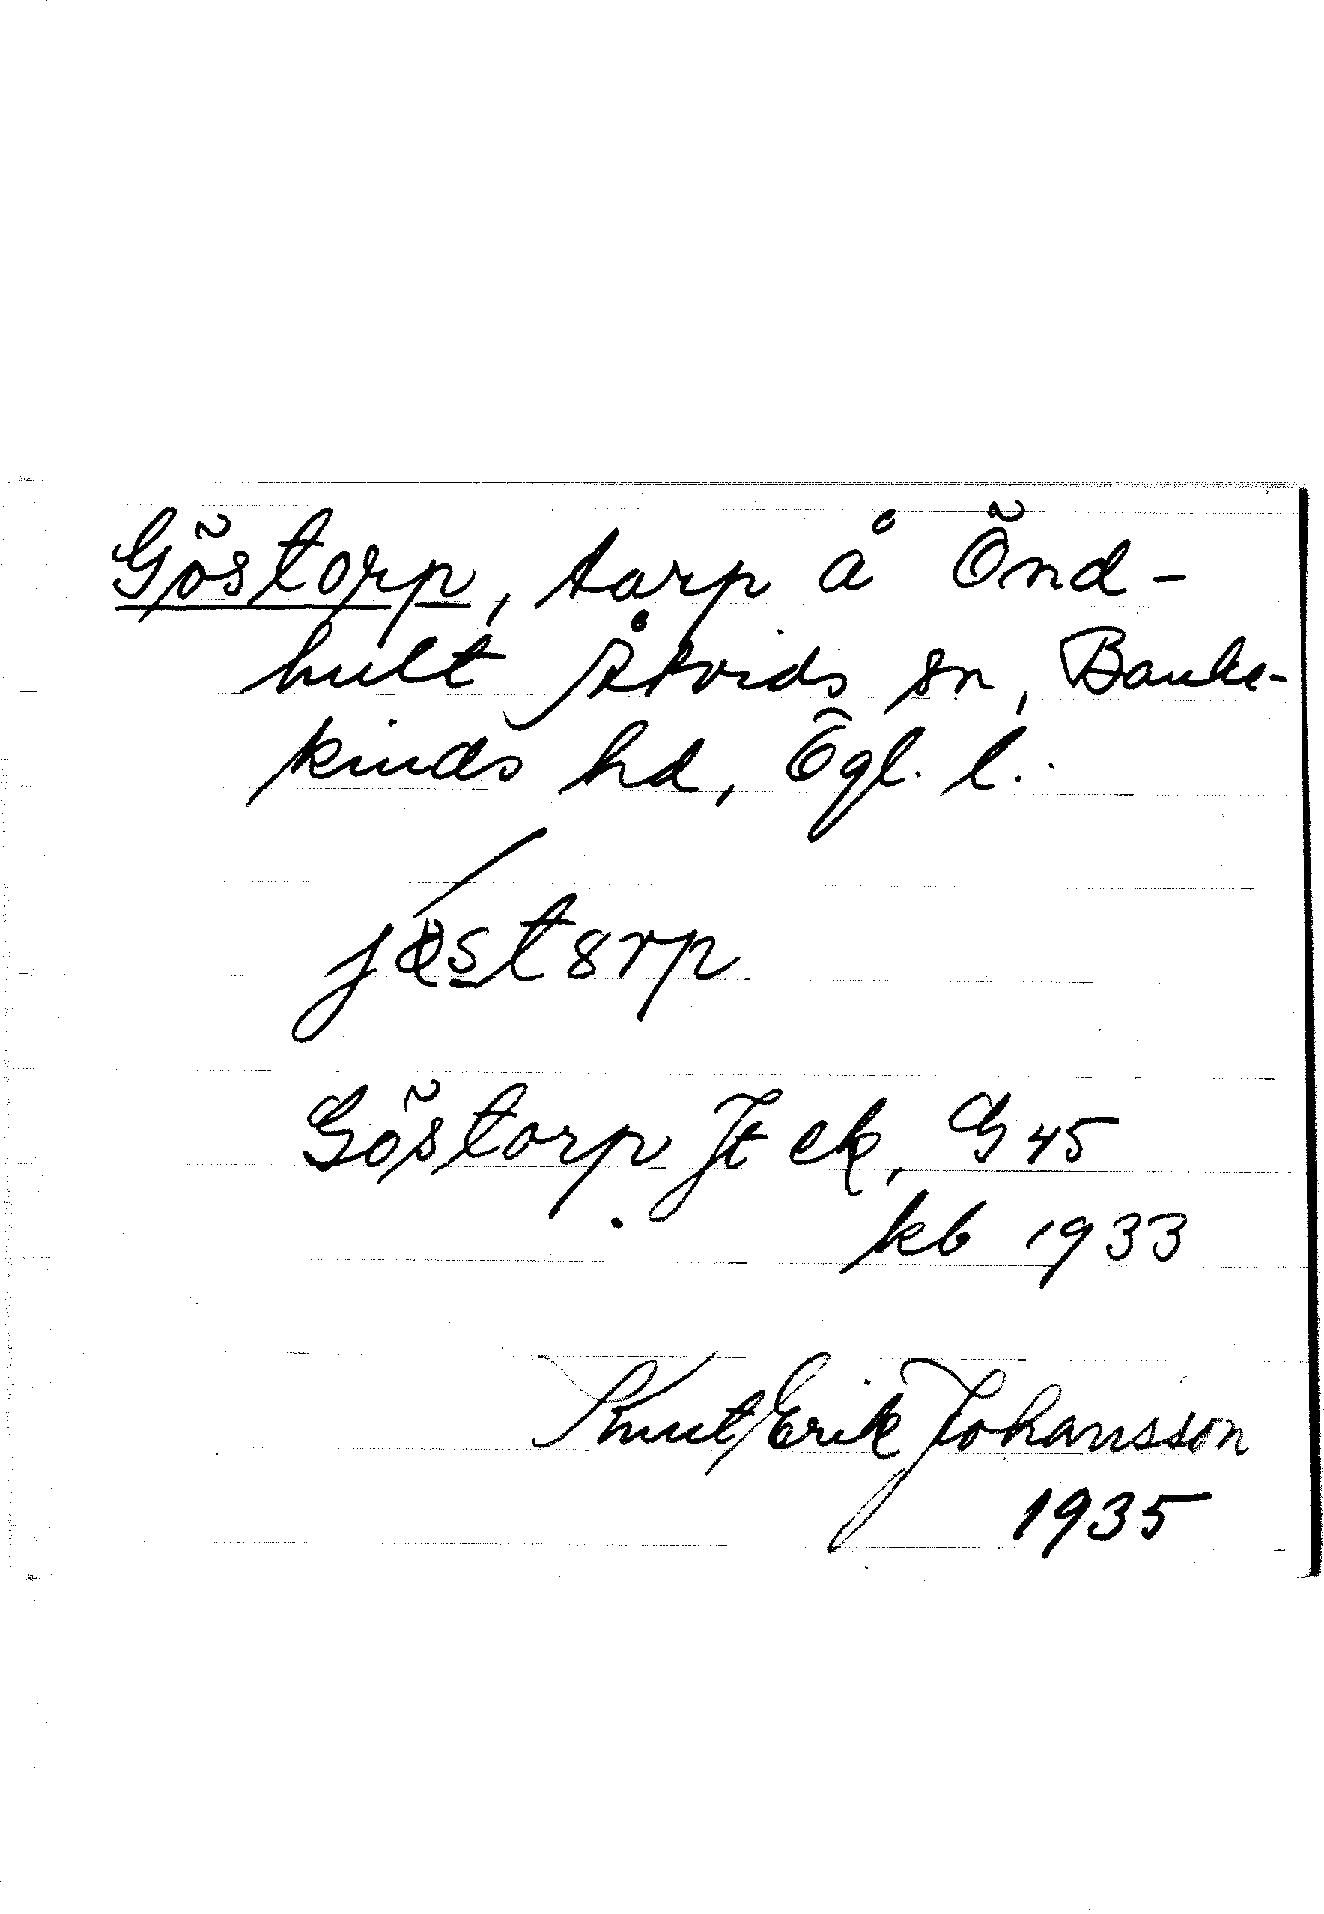 Göstorp, torp å Önd-
hult Åtvids sn, Banke-
kinds hd, Ögl. l.
jœstørp
Göstorp Jt ek, G 45
kb 1933
Knut Erik Johansson
1935